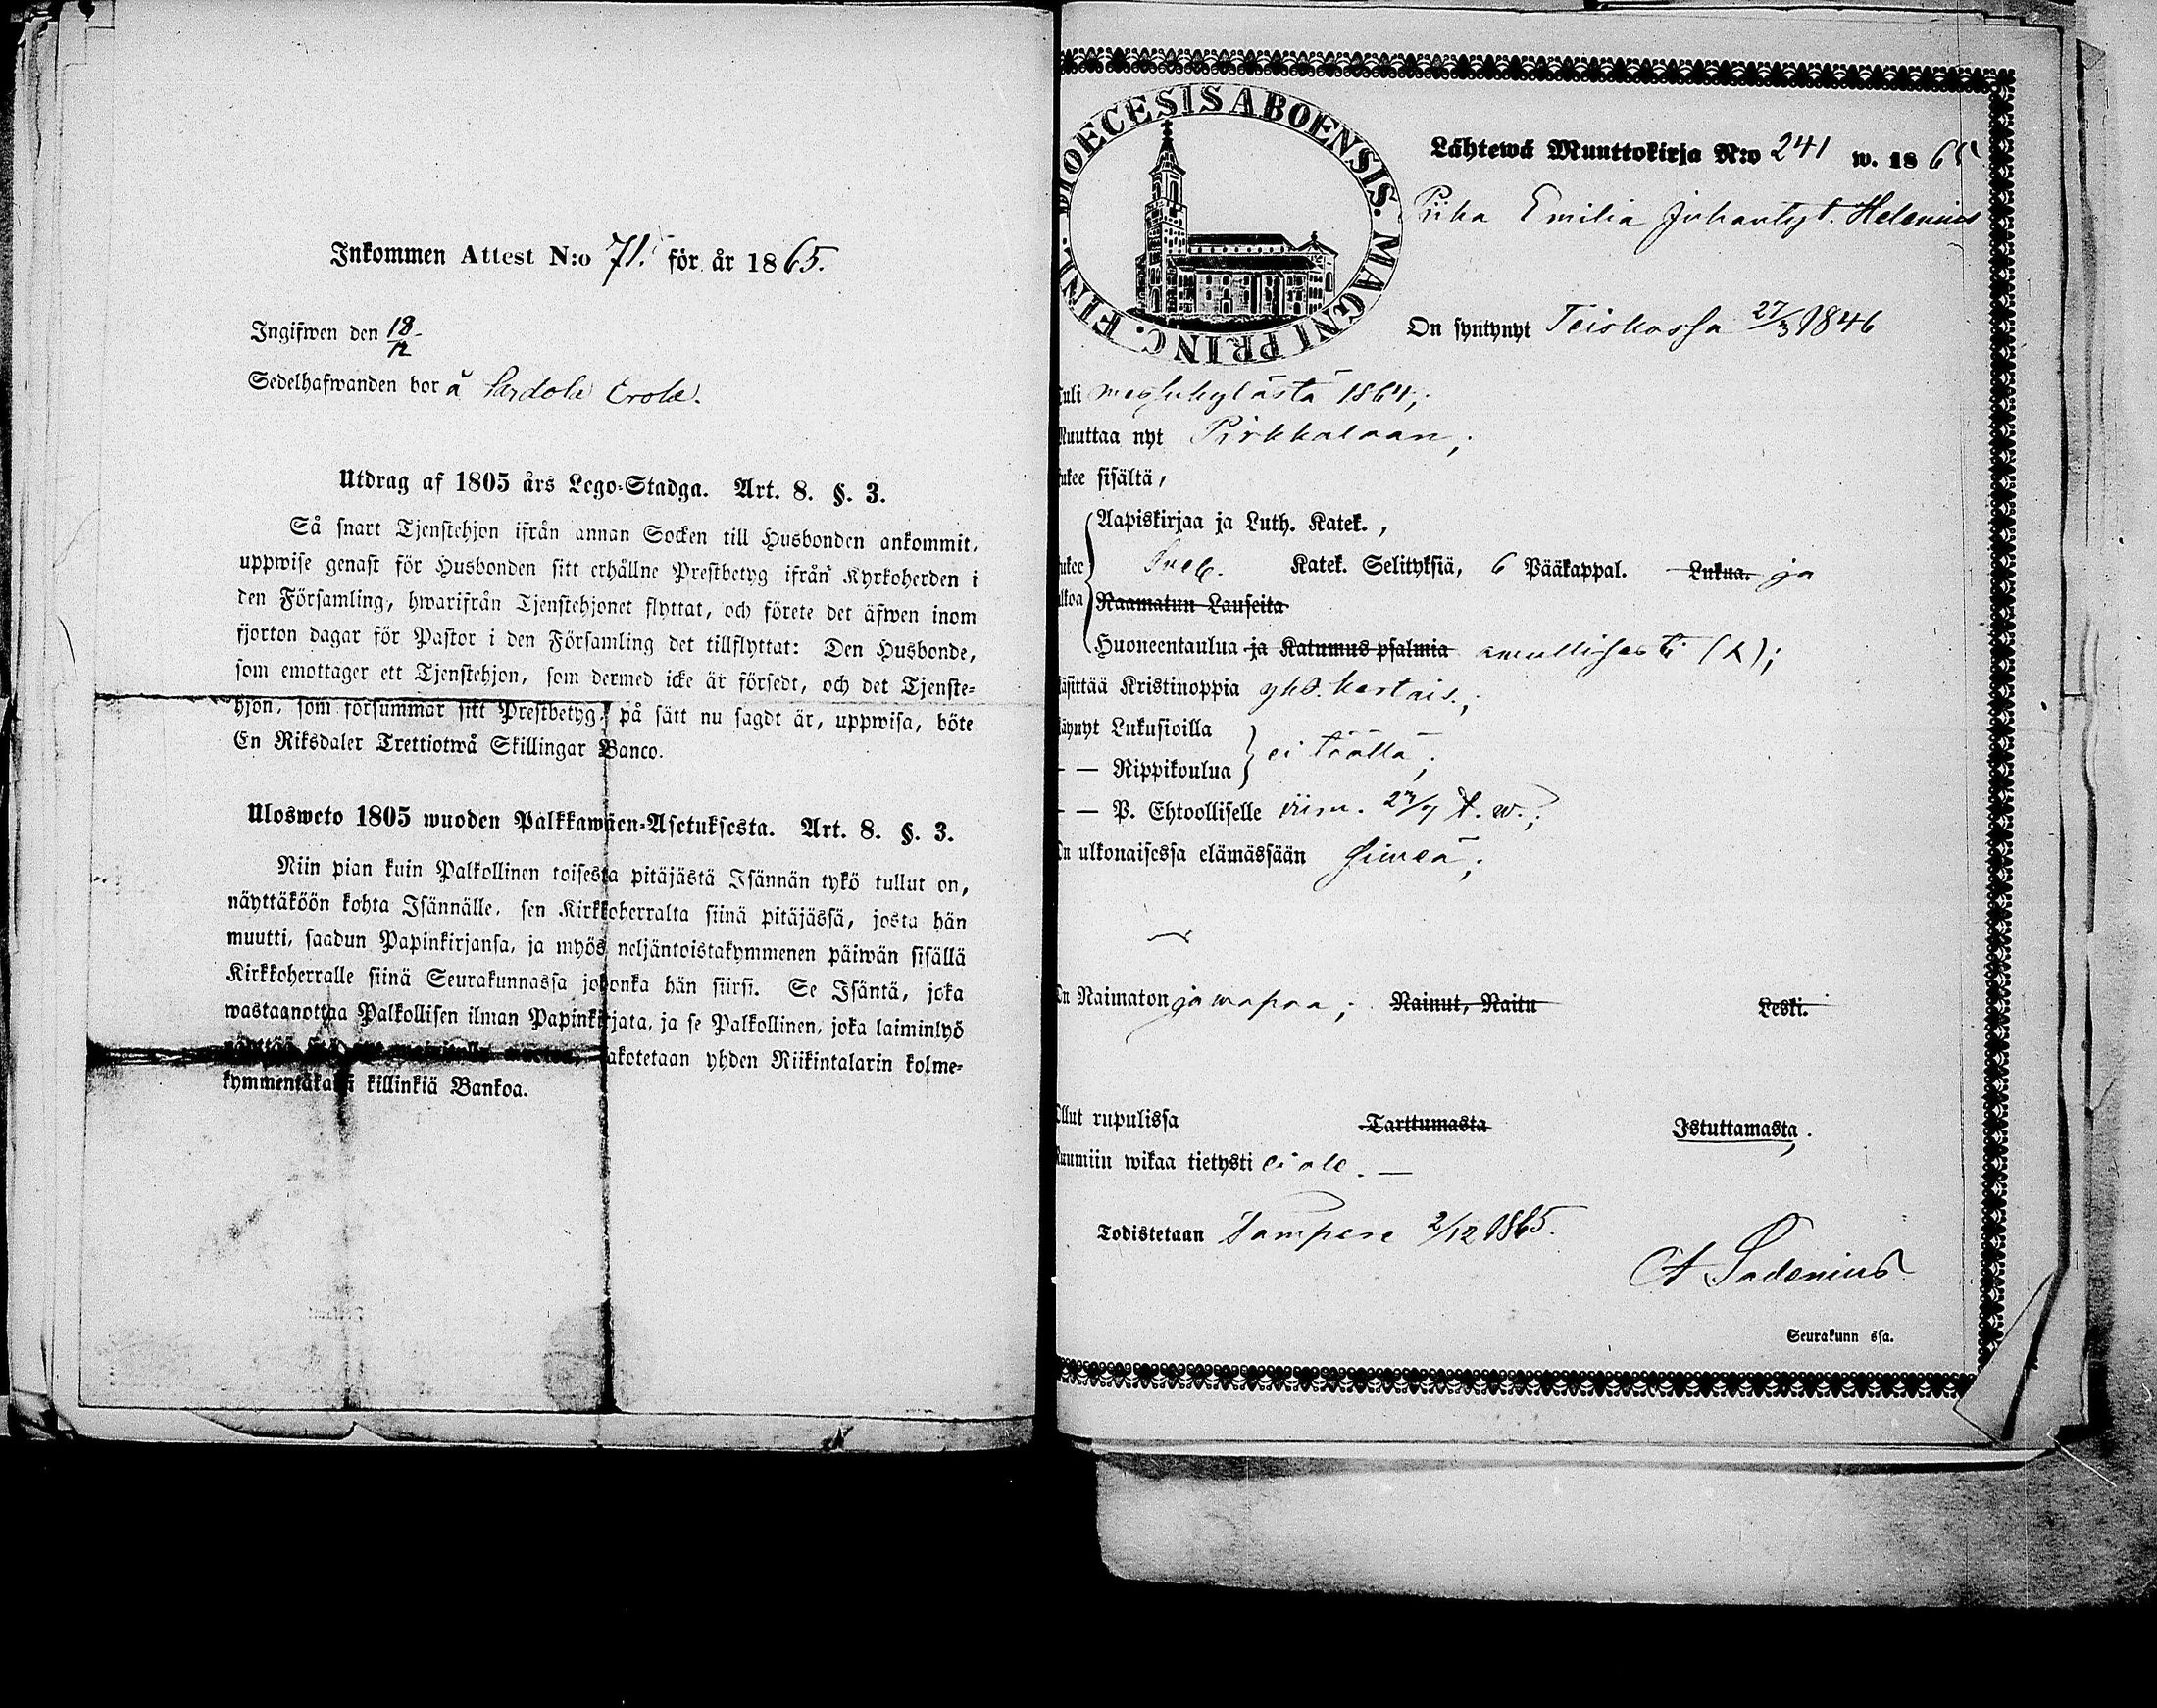 Inkommen Attest N:o 71. för år 1865.
Ingifwen den 18/12
Sedelhafwanden bor å Erola.
Utdrag af 1805 års Lego-Stadga. Art. 8. §. 3.
Så snart Tjenstehjon ifrån annan Socken till Husbonden ankommit,
uppwise genast för Husbonden sitt erhållne Prestbetyg ifrån Kyrkoherden i
den Församling, hwarifrån Tjenstehjonet flyttat, och förete det äfwen inom
fjorton dagar för Pastor i den Församling det tillflyttat: Den Husbonde,
som emottager ett Tjenstehjon, som dermed icke är försedt, och det Tjenste-
hjon, som försummar sitt Prestbetyg, på sätt nu sagdt är, uppwisa, böte
En Riksdaler Trettiotwå Skillingar Banco.
Ulosweto 1805 wuoden Palkkawäen-Asetuksesta. Art. 8. §. 3.
Niin pian kuin Palkollinen toisesta pitäjästä Isännän tykö tullut on,
näyttäköön kohta Isännälle, sen Kirkkoherralta siinä pitäjässä, josta hän
muutti, saadun Papinkirjansa, ja myös neljäntoistakymmenen päiwän sisällä
Kirkkoherralle siinä Seurakunnassa johonka hän siirsi. Se Isäntä, joka
wastaanottaa Palkollisen ilman Papinkirjata, ja se Palkollinen, joka laiminlyö
näyttää sitä akotetaan yhden Riikintalarin kolme-
kymmentäkaksi killinkiä Bankoa.
DIOECESIS ABOENSIS. MAGNI PRINC. FINL.
Lähtewä Muuttokirja N:o 241 w. 1865
Piika Emilia Juhantyt. Helenius
On syntynyt Teiskossa 27/3 1846
uli Messukylästä 1864;
Muuttaa nyt Pirkkalaan;
ukee sisältä,
Aapiskirjaa ja Luth. Katek.,
ukee Sveb. Katek. Selityksiä, 6 Pääkappal. Lukua. ja
lkoa Raamatun Lauseita
Huoneentaulua ja Katumus psalmia (X);
äsittää Kristinoppia yks.kertais.;
äynyt Lukusioilla
— — Rippikoulua ei täällä;
— — P. Ehtoolliselle viim. t. w.;
On ulkonaisessa elämässään siweä;
On Naimaton ja wapaa; Nainut, Naitu Leski.
Ollut rupulissa Tarttumasta Istuttamasta.
Ruumiin wikaa tietysti ei ole. —
Todistetaan Tampere 2/12 1865.
Seurakunn ssa.